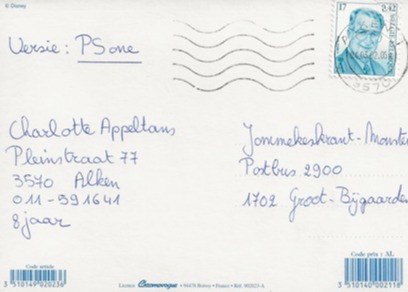 © Disney
17 2,42
Versie : PSone
Charlotte Appeltans
Pleinstraat 77
3570 Alken
011-591641
8 jaar
Jommekeskrant-Monster
Postbus 2900
1702 Groot-Bijgaarden
Code article
3 510149 020236
Licence
94478 Boissy • France • Réf.
Code prix : AL
3 510140 002118